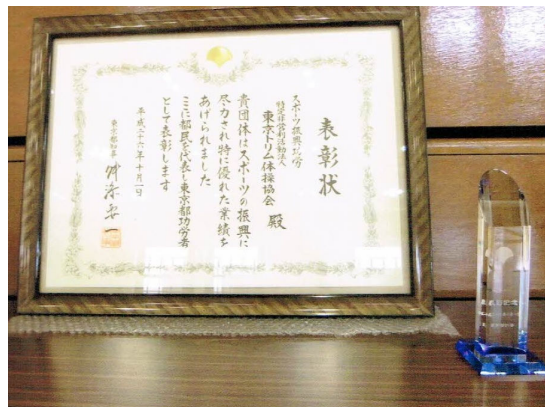 表彰状
スポーツ振興功労
特定非営利活動法人
東京トリム体操協会 殿
貴団体はスポーツの振興に
尽力され特に優れた業績を
あげられました
ここに都民を代表し東京都功労者
として表彰します
平成二十六年十月一日
東京都知事 舛添要一